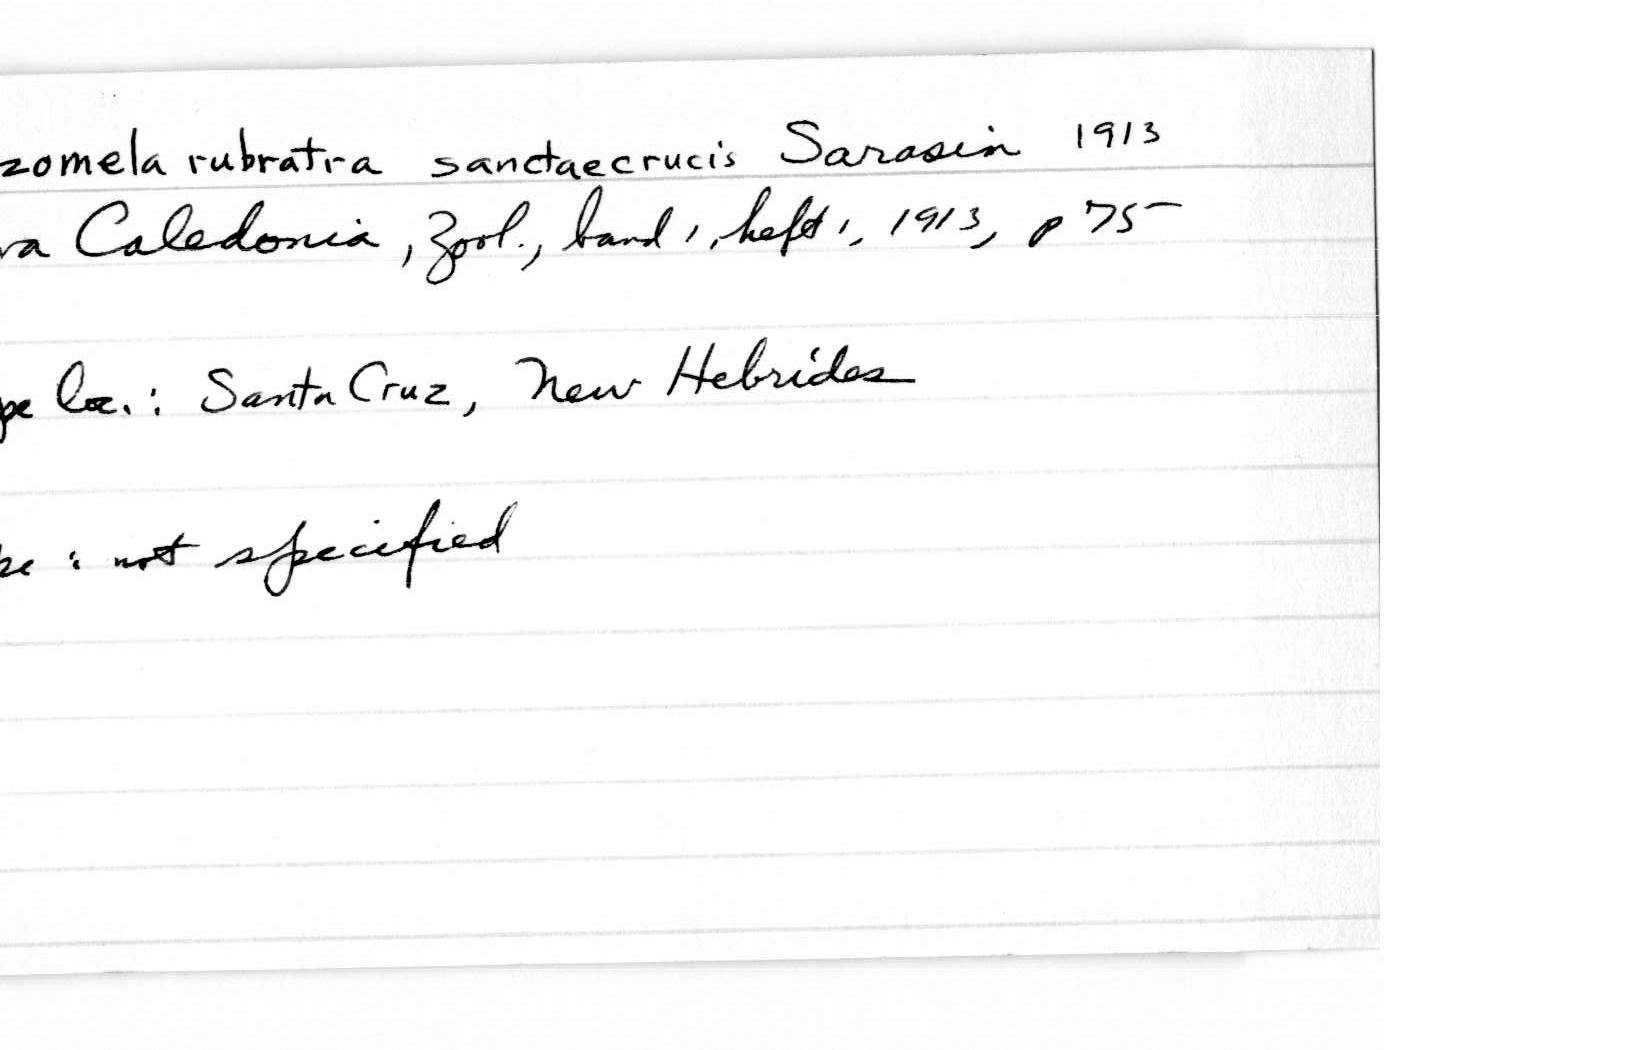 zomela rubratra sanctaecrucis Sarasin 1913
va Caledonia, Zool., band 1, heft 1, 1913, p 75
pe loc.: Santa Cruz, New Hebrides
pe : not specified